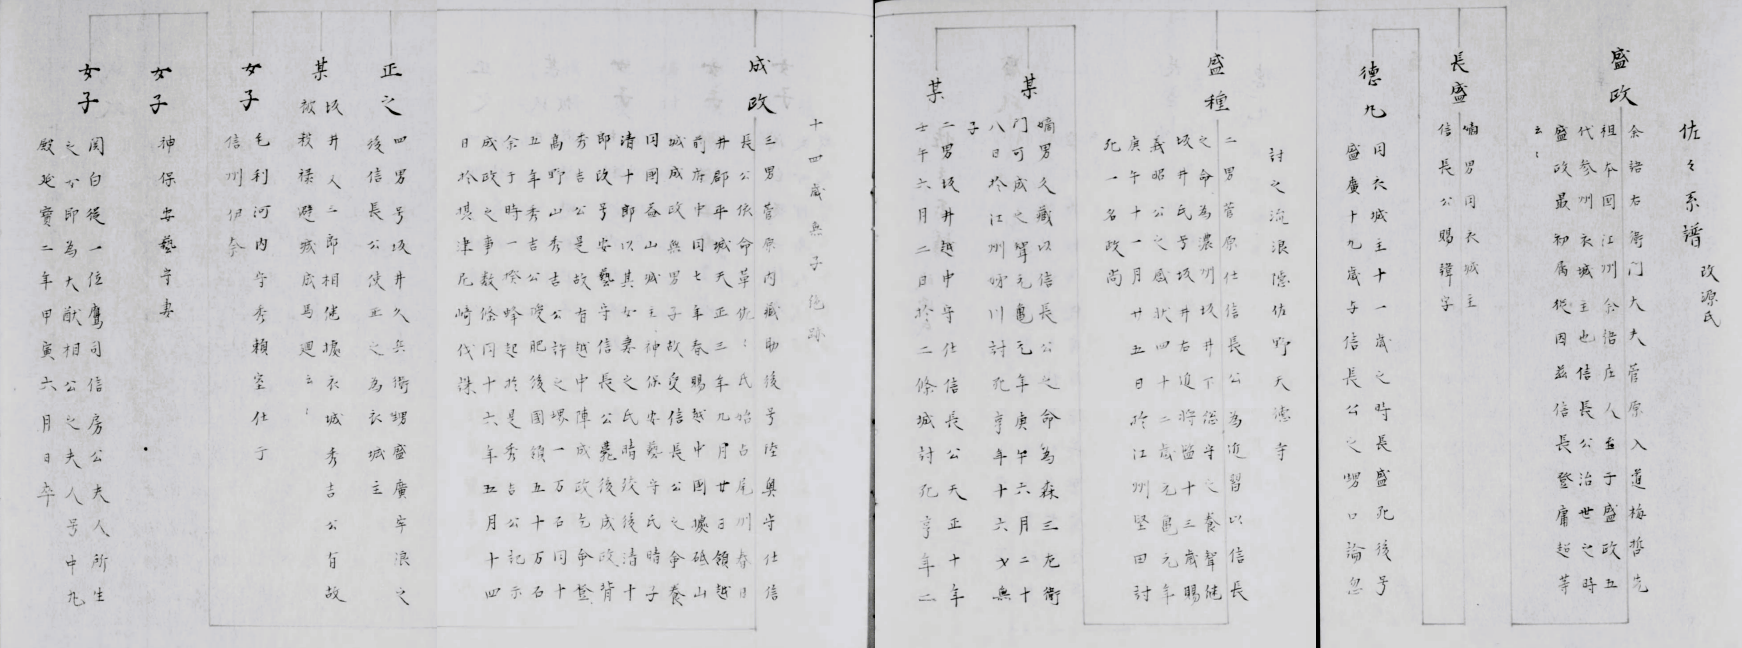 佐々系譜 改源氏
盛政
余語右衛門大夫菅原入道梅哲先
祖本国江州余語庄人至于盛政五
代参州衣城主也信長公治世之時
盛政最初属従因茲信長登庸超等
云〻
長盛
嫡男同衣城主
信長公賜諱字
徳九
同衣城主十一歳之時長盛死後号
盛廣十九歳与信長公之甥口論忽
討之流浪憶佐野天徳寺
盛種
二男菅原仕信長公為近習以信長
之命為濃州坂井下総守之養聟継
坂井氏号坂井右近将監十三歳賜
義昭公之感状四十二歳元亀元年
庚午十一月廿五日於江州堅田討
死一名政尚
某
嫡男久蔵以信長公之命為森三左衛
門可成之聟元亀元年庚午六月二十
八日於江州姉川討死享年十六才無
子
某
二男坂井越中守仕信長公天正十年
壬午六月二日於二條城討死享年二
十四歳無子絶跡
成政
三男菅原内蔵助後号陸奥守仕信
長公依命華佐〻氏始占尾州春日
井郡平城天正三年九月廿日領越
前府中同七年春賜越中國據砥山
城成政無男子故受信長公之命養
同國森山城主神保安藝守氏時子
清十郎以其女妻之氏晴後改後清十
郎改号安藝守信長公薨後成政背
秀吉公是故有越中陣成政乞命登
高野山秀吉公許之堺一万石同十
五年秀吉公受肥後國領五十万石
余于時一揆蜂起於是秀吉公記示
成政之事数條同十六年五月十四
日於摂津尼崎伐誅
正之
四男号坂井久兵衛甥盛廣牢浪之
後信長公使正之為衣城主
某
坂井久二郎相継據衣城秀吉公有故
被移禄避城底馬廻云〻
女子
毛利河内守秀頼室仕于
信州伊奈
女子
神保安藝守妻
女子
関白従一位鷹司信房公夫人所生
之女即為大猷相公之夫人号中丸
殿延寶二年甲寅六月日卒